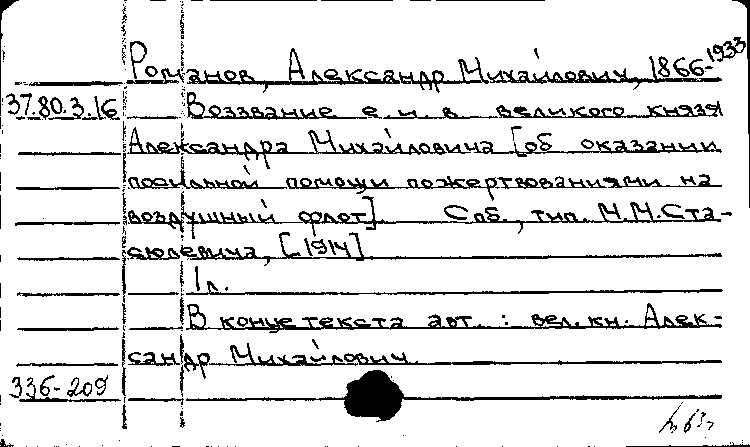 Романов, Александр Михайлович, 1866-1933
37.80.3.16 Воззвание е.и.в. великого князя
Александра Михайловича [об оказании
посильной помощи пожертвованиями на
воздушный флот]. Спб., тип. М.М.Ста-
сюлевича, [1914].
1л.
В конце текста авт.: вел.кн. Алек-
сандр Михайлович.
336-209